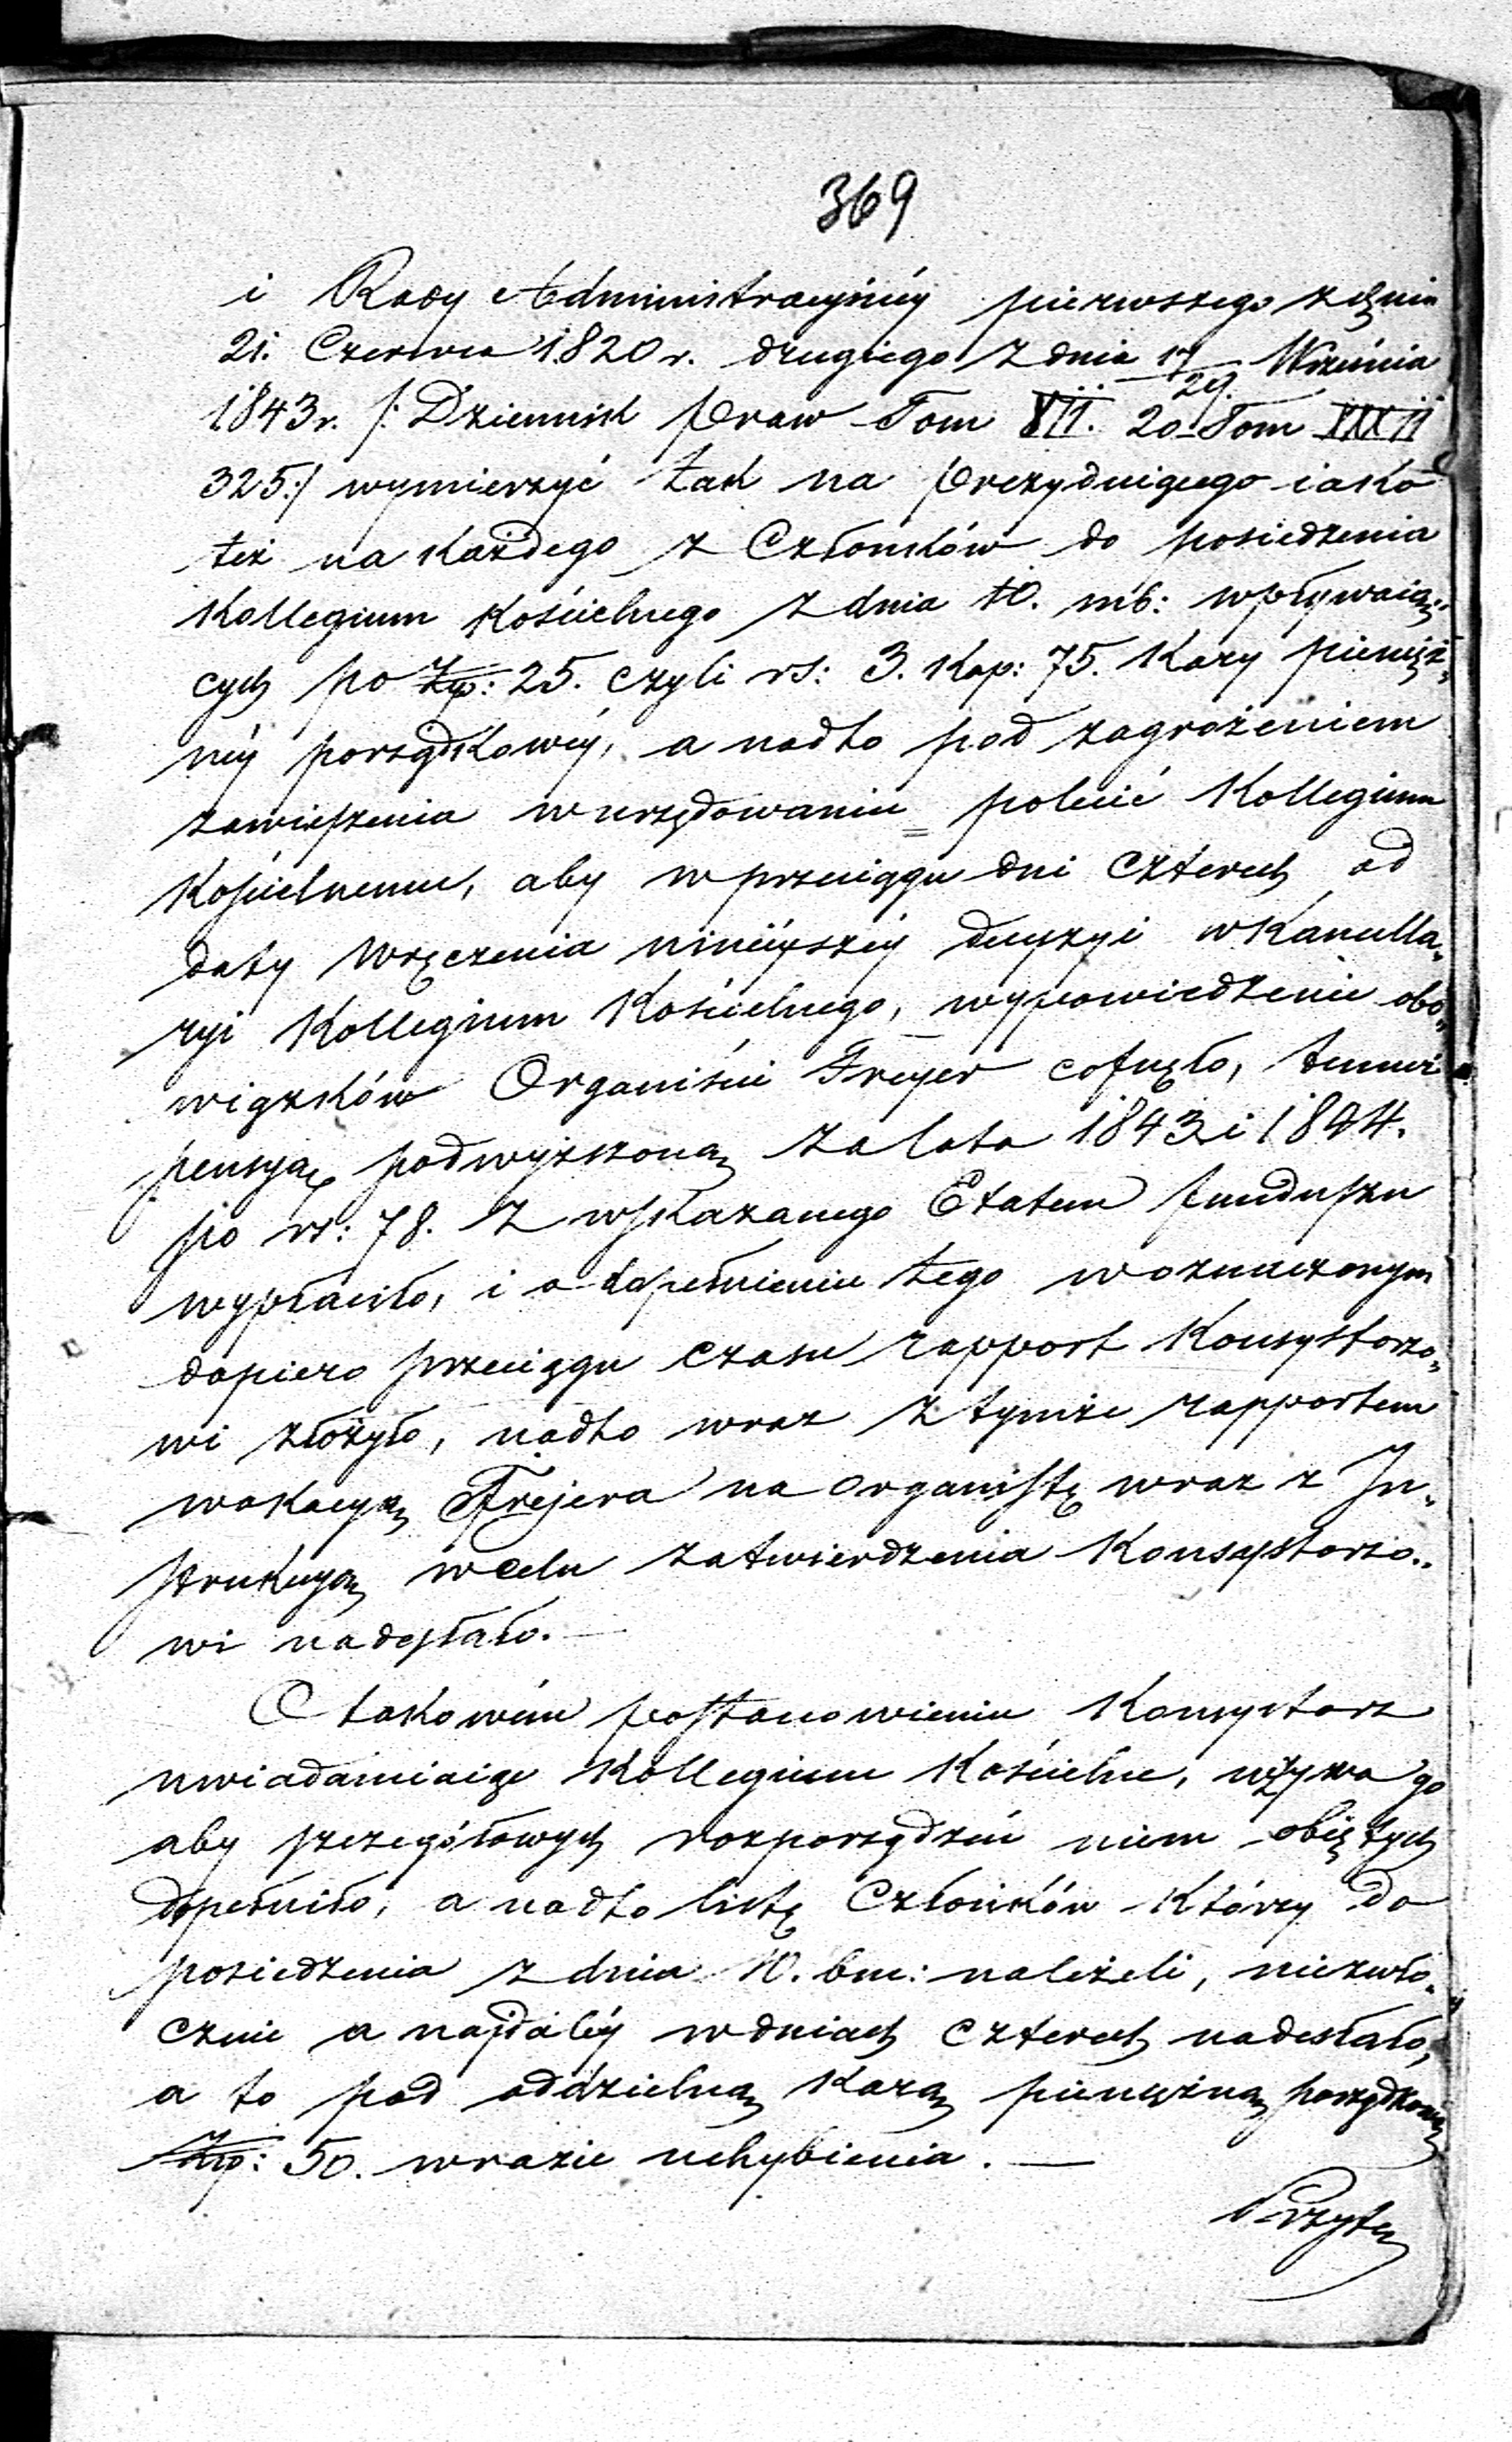 369
i Rady Administracyinéy pierwszego z dnia
21. Czerwca 1820 r. drugiego z dnia 17/29. Września
1843 r. /: Dziennik Praw Tom VII. 20. Tom XXXII
325:/ wymierzyć tak na Prezyduiącego iako
też na każdego z Członków do posiedzenia
Kollegium Kościelnego z dnia 10. mb: wpływaią„
cych po Złp: 25. czyli rs: 3. kop: 75. kary pienięż„
néy porządkowéy, a nadto pod zagrożeniem
zawieszenia w urzędowaniu polecić Kollegium
Kościelnemu, aby w przeciągu dni czterech od
daty wręczenia ninieyszéy decyzyi w Kancella„
ryi Kollegium Kościelnego, wypowiedzenie obo„
wiązków Organiście Freyer cofnęło, temuż
pensyą podwyższoną za lata 1843 i 1844.
po rs: 78. z wskazanego Etatem funduszu
wypłaciło, i o dopełnieniu tego w oznaczonym
dopiero przeciągu czasu rapport Konsystorzo„
wi złożyło, nadto wraz z tymże rapportem
wokacyą Frejera na organistę wraz z In„
strukcyą w celu zatwierdzenia Konsystorzo„
wi nadesłało.
O takowém postanowieniu Konsystorz
uwiadamiaiąc Kollegium Kościelne, wzywa go
aby szczegółowych rozporządzeń niem obiętych
dopełniło, a nadto listę Członków którzy do
posiedzenia z dnia 10. bm: należeli, niezwło„
cznie a najdaléy w dniach czterech nadesłało,
a to pod oddzielną karą pieniężną porządkową
Złp: 50. w razie uchybienia.